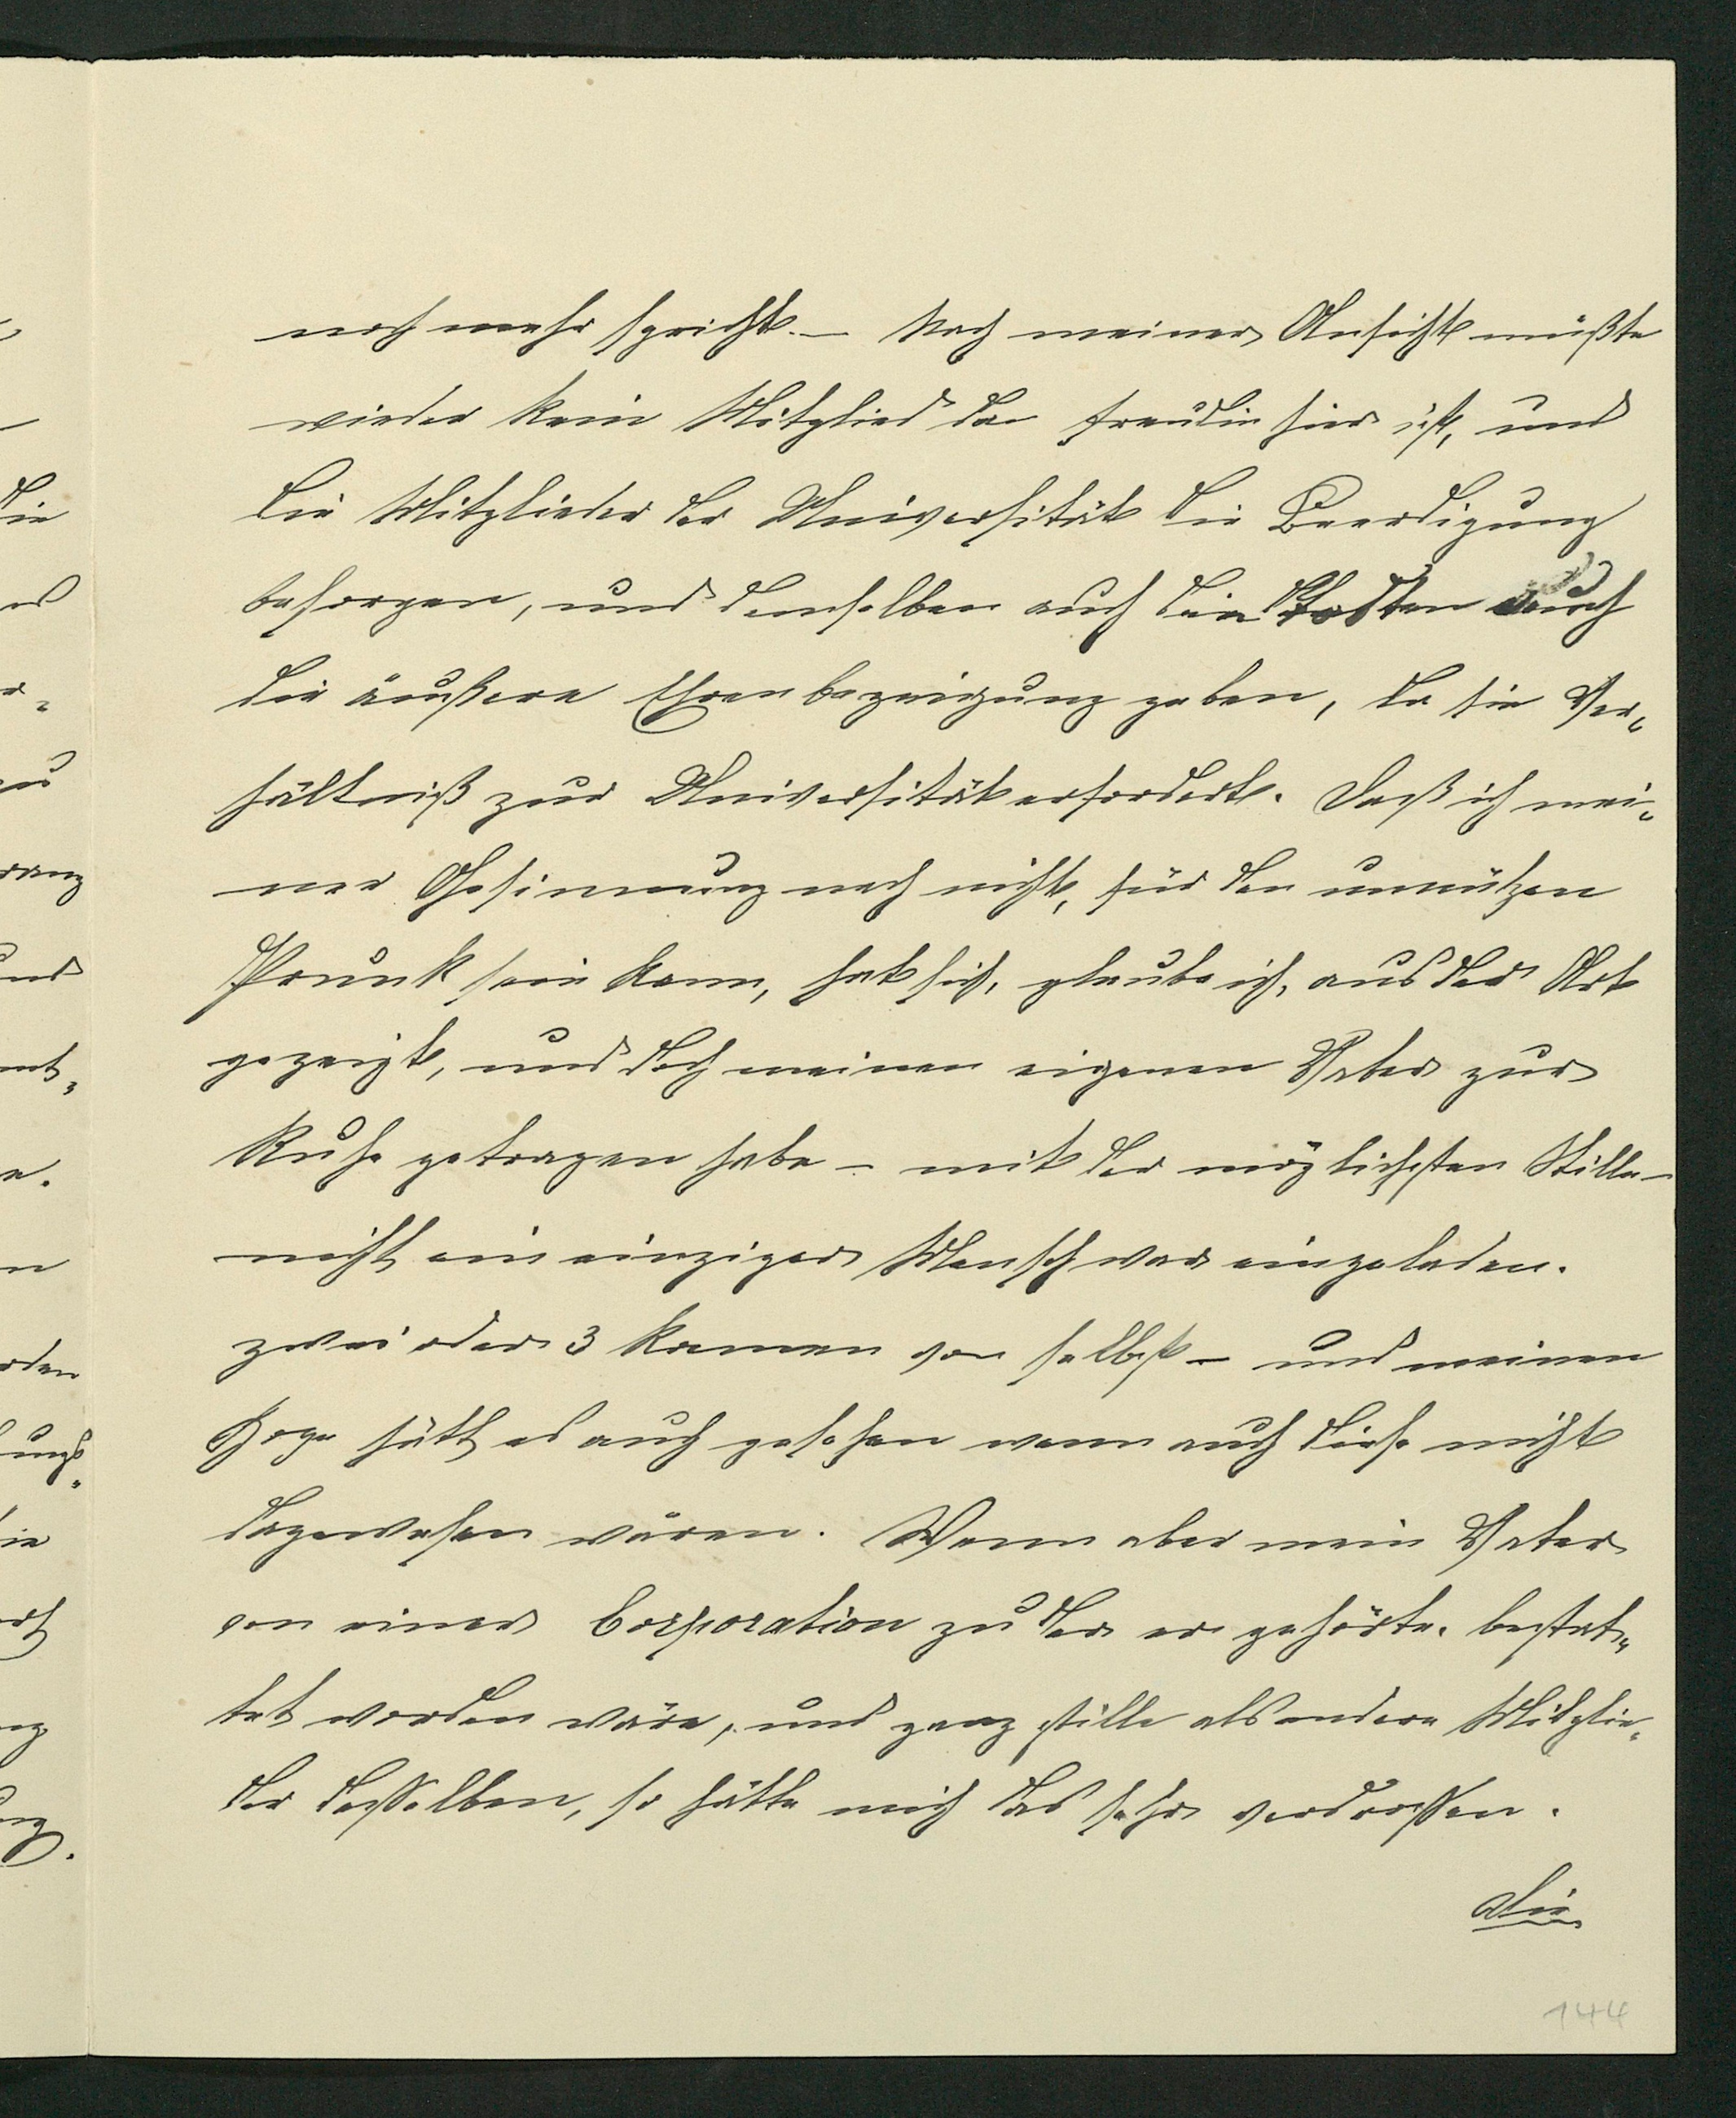 noch mehr spricht. — Nach meiner Ansicht müßte
wieder kein Mitglied der hier ist, und
die Mitglieder der Universität die Beerdigung
besorgen, und demselben auch durch
die äußere Ehrenbezeigung geben, da sie Ver„
hältniß zur Universität erfordert. Daß ich mei„
ner Gesinnung nach nicht, für den unnützen
Prunk sein kann, hat sich, glaube ich, aus der Art
gezeigt, und doch meinen eigenen Vater zur
Ruhe getragen habe – mit der möglichsten Stille –
nicht ein einziger Mensch war eingeladen.
zwei oder 3 kamen von selbst – und meinen
hätt es auch gesehen wenn auch diese nicht
dagewesen wären. Wenn aber mein Vater
von einer Corporation zu der er gehörte. bestat„
tet worden wäre, und ganz stille als andere Mitglie„
der desselben, so hätte mich das sehr verdrossen.
Die
144